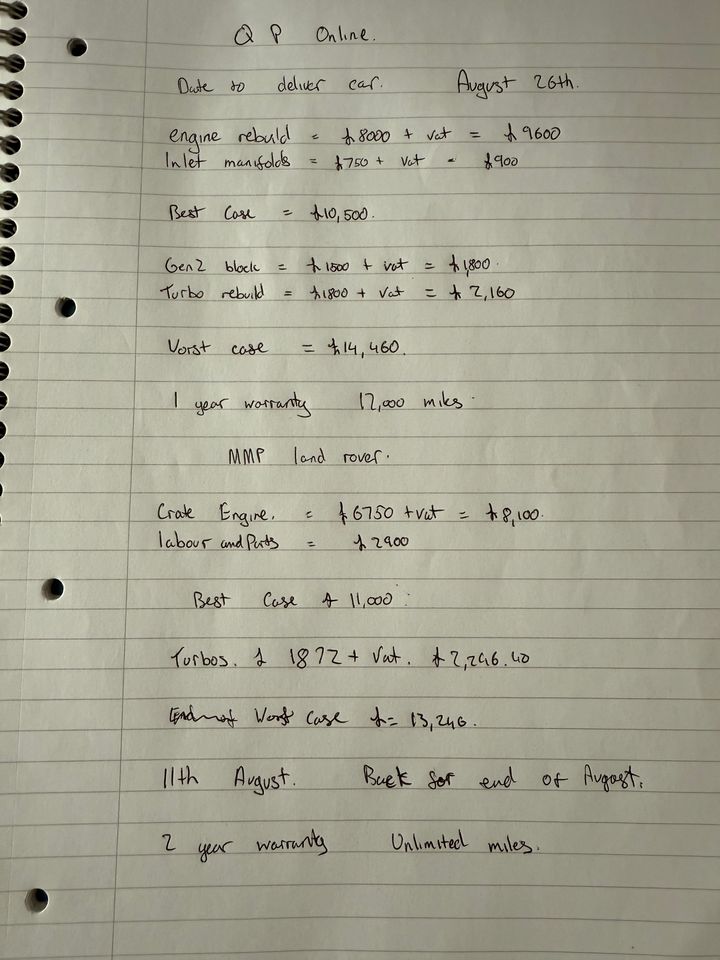 Q P Online.
Date to deliver car. August 26th.
engine rebuild = £8000 + vat = £9600
Inlet manifolds = £750 + vat = £900
Best Case = £10,500.
Gen2 block = £1500 + vat = £1,800.
Turbo rebuild = £1800 + vat = £2,160
Worst case = £14,460.
1 year warranty 12,000 miles.
MMP land rover.
Crate Engine. = £6750 + vat = £8,100.
labour and Parts = £2900
Best Case £11,000.
Turbos. £1872 + Vat. £2,246.40
Worst Case £= 13,246.
11th August. Back for end of August.
2 year warranty Unlimited miles.